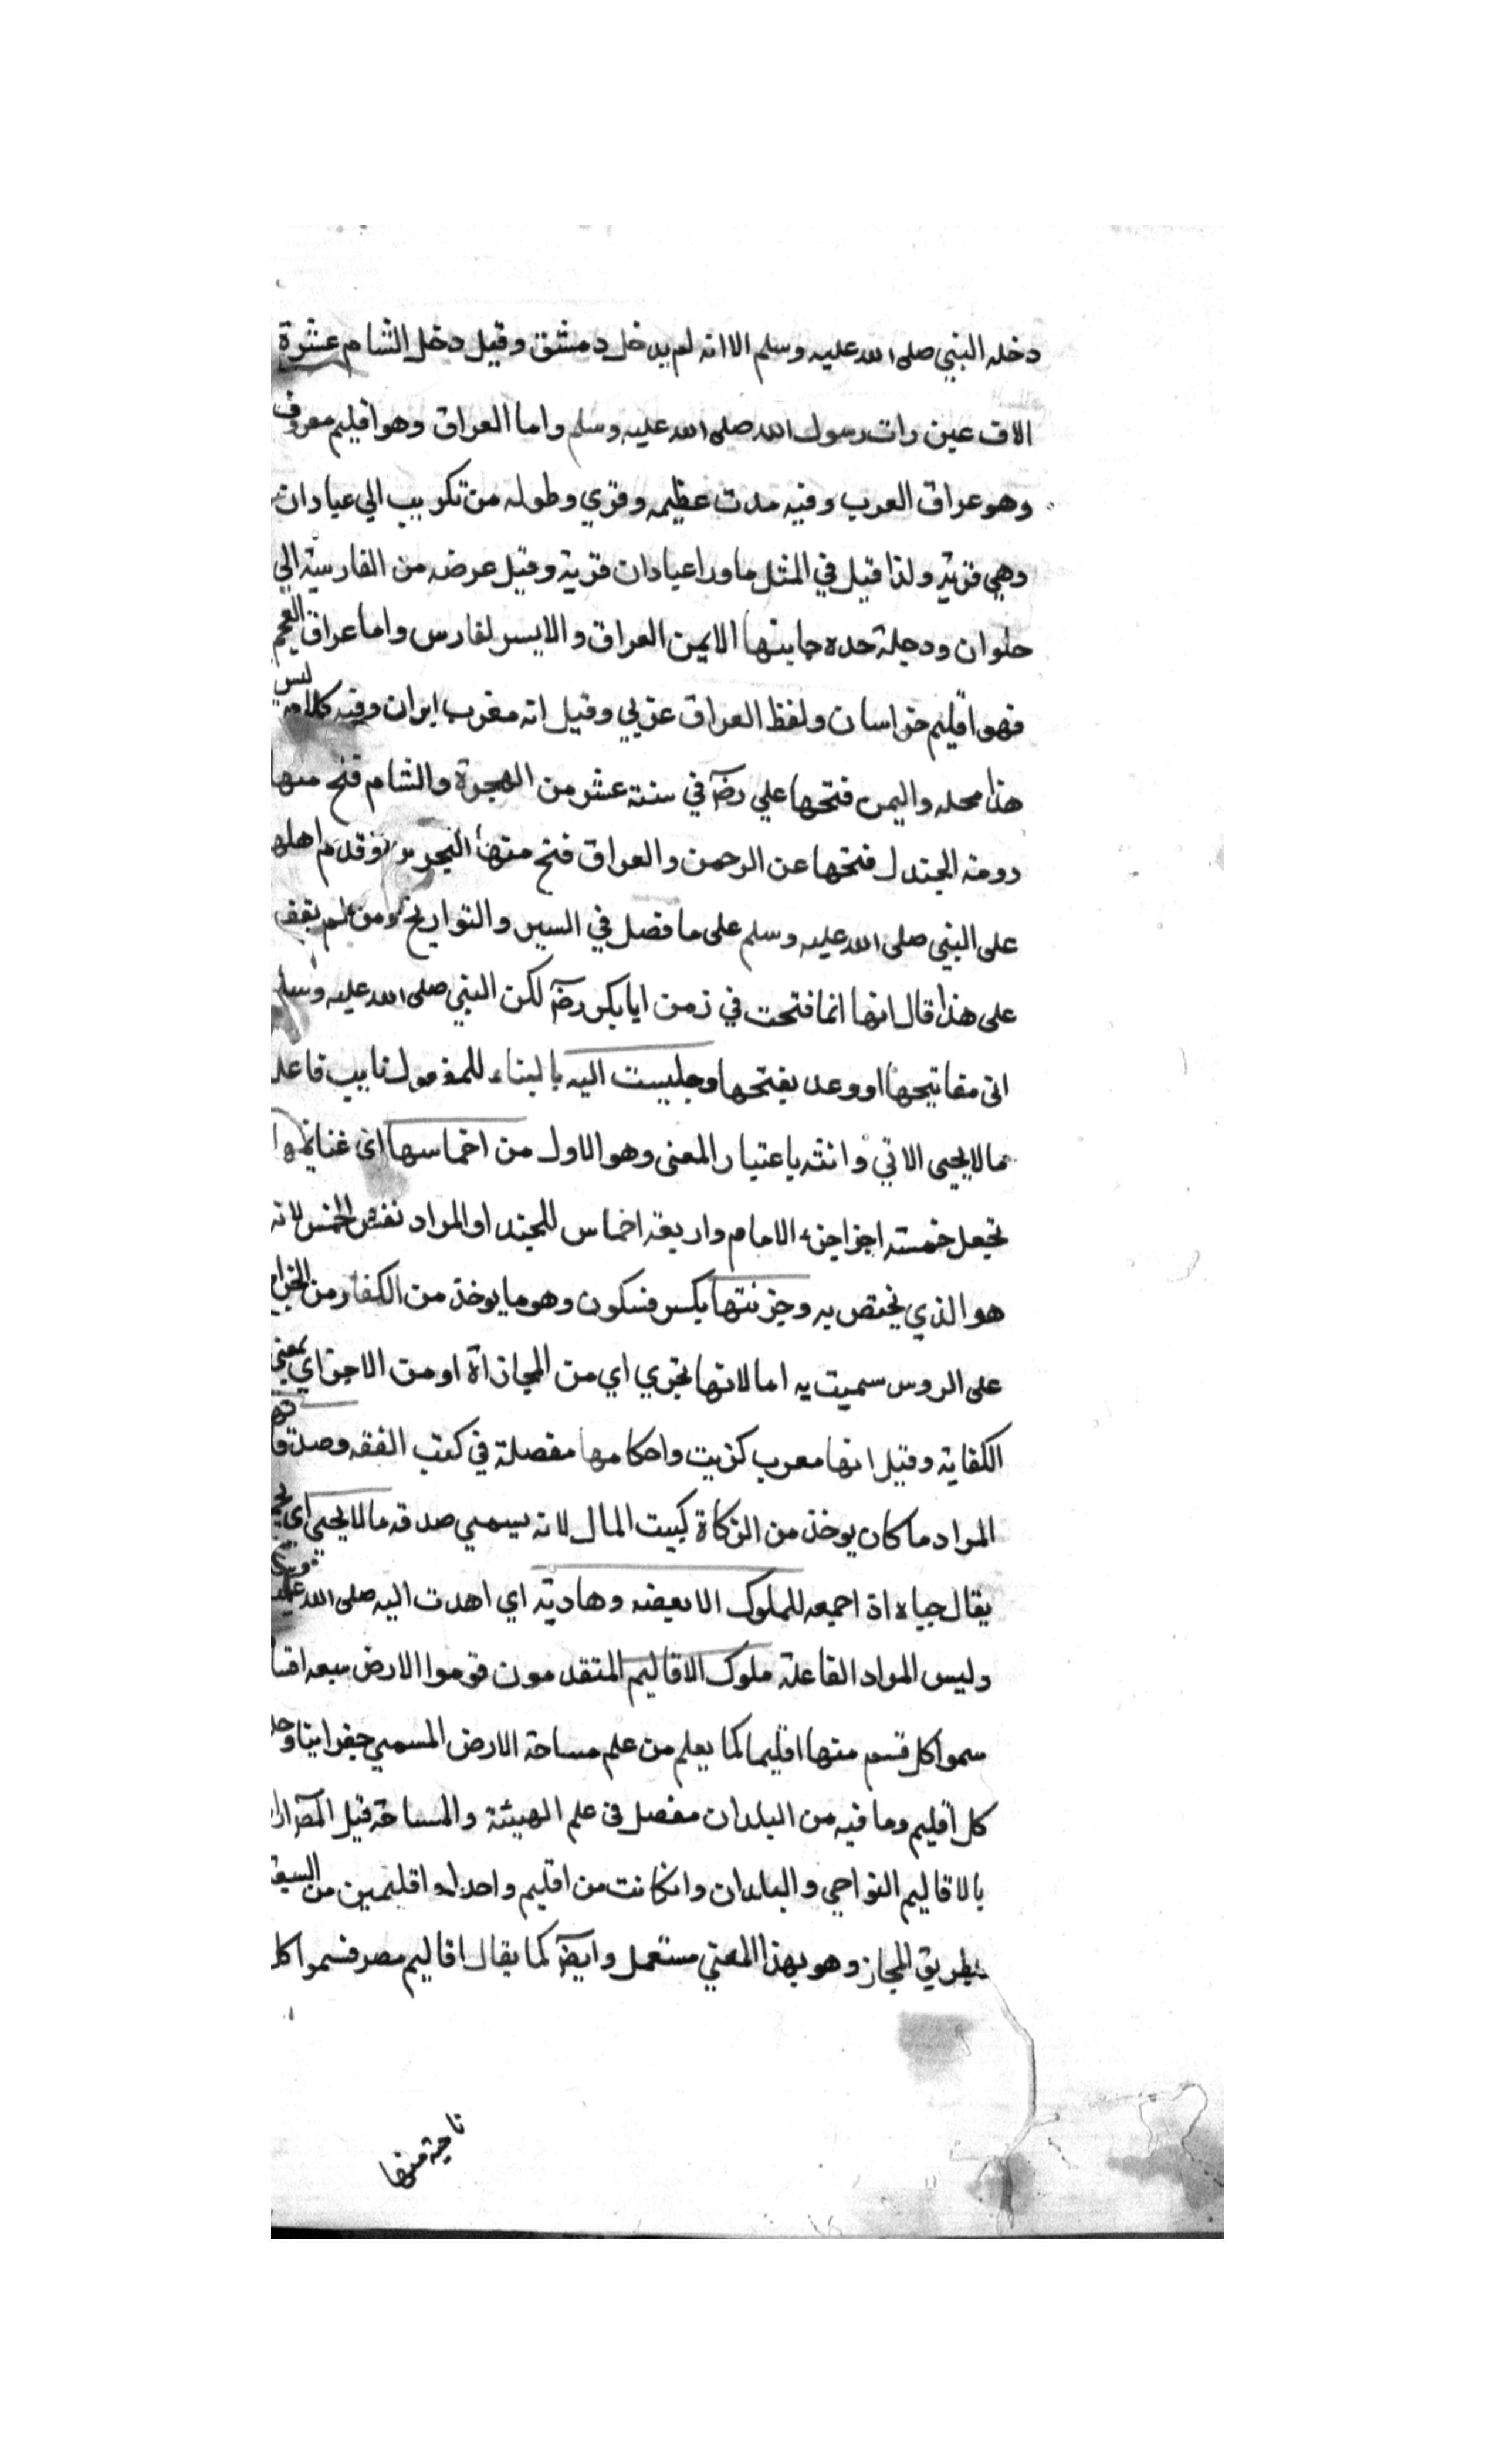 دخله النبي صلى الله عليه وسلم الا انه لم يدخل دمشق وقيل دخل الشام عشرة
الاف عين رات رسول الله صلى الله عليه وسلم واما العراق وهو اقليم معروف
وهو عراق العرب وفيه مدت عظيمه وقري وطوله من تكريب الي عيادان
وهي قرية ولذا قيل في المثل ماورا عيادان قرية وقيل عرضه من القارسية الي
حلوان ودجلة حده جابنها الايمن العراق والايسر لفارس واما عراق العجم
فهو اقليم خراسان ولفظ العراق عربي وقيل انه مغرب ايران وفيه كلام ليس
هذا محله واليمن فتحها علي رضه في سنة عشر من الهجرة والشام فتح منها
دومة الجندل فتحها عن الرحمن والعراق فتح منها وقدم اهلها
على النبي صلى الله عليه وسلم على ما فصل في السير والتواريخ ومن لم يقف
على هذا قال انها انما فتحت في زمن ابابكر رضه لكن النبي صلى الله عليه وسلم
اتى مفاتيحها او وعد بفتحها وجلبست اليه بالبناء للمفعول نايب فاعله
مالا يحيى الاتي وانثه باعتبار المعنى وهو الاول من اخماسها اي غنائمها
تجعل خمسته اجزا جزء الامام واربعة اخماس للجند او المراد نفس الخمس لانه
هو الذي يختص به وجزيتها بكسر فسكون وهو ما يوخذ من الكفار من الخراج
على الروس سميت به اما لانها تجزي اي من المجازاة او من الاجزاي بمعني
الكفاية وقيل انها معرب كزيت واحكامها مفصلة في كتب الفقه وصدقاتها
المراد ما كان يوخذ من الزكاة كبيت المال لانه يسمي صدقه مالا يحيى اي
يقال جباه اذ اجمعه للملوك الا بعضه وهادته اي اهدت اليه صلى الله عليه
وليس المراد الفاعلة ملوك الاقاليم المتقدمون قوموا الارض سبعه اقسا
سموا كل قسم منها اقليما كما يعلم من علم مساحة الارض المسمي جغرافيا وحد
كل اقليم وما فيه من البلدان مفصل في علم الهيئة والمساحة قيل المصر اراد
بالاقاليم النواحي والبلدان وانكانت من اقليم واحد او اقليمين من السبعة
بطريق المجاز وهو بهذا المعني مستعمل وايضا كما يقال اقاليم مصر فسموا كل
ناحية منها